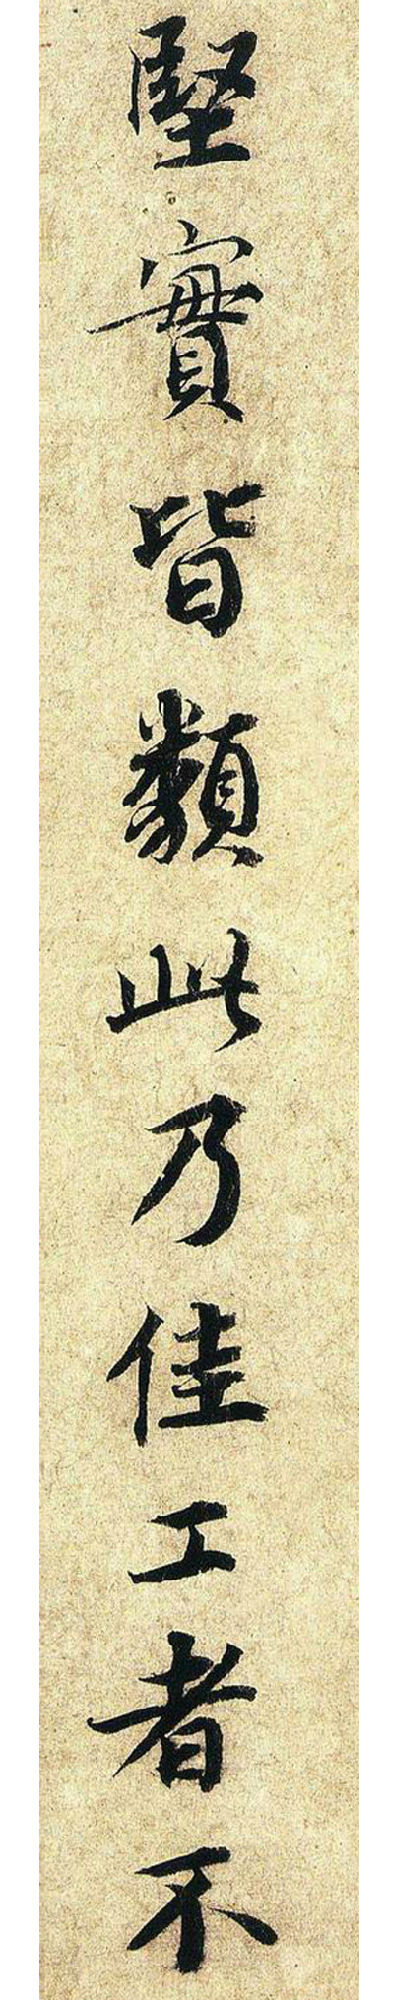 堅實皆類此乃佳工者不